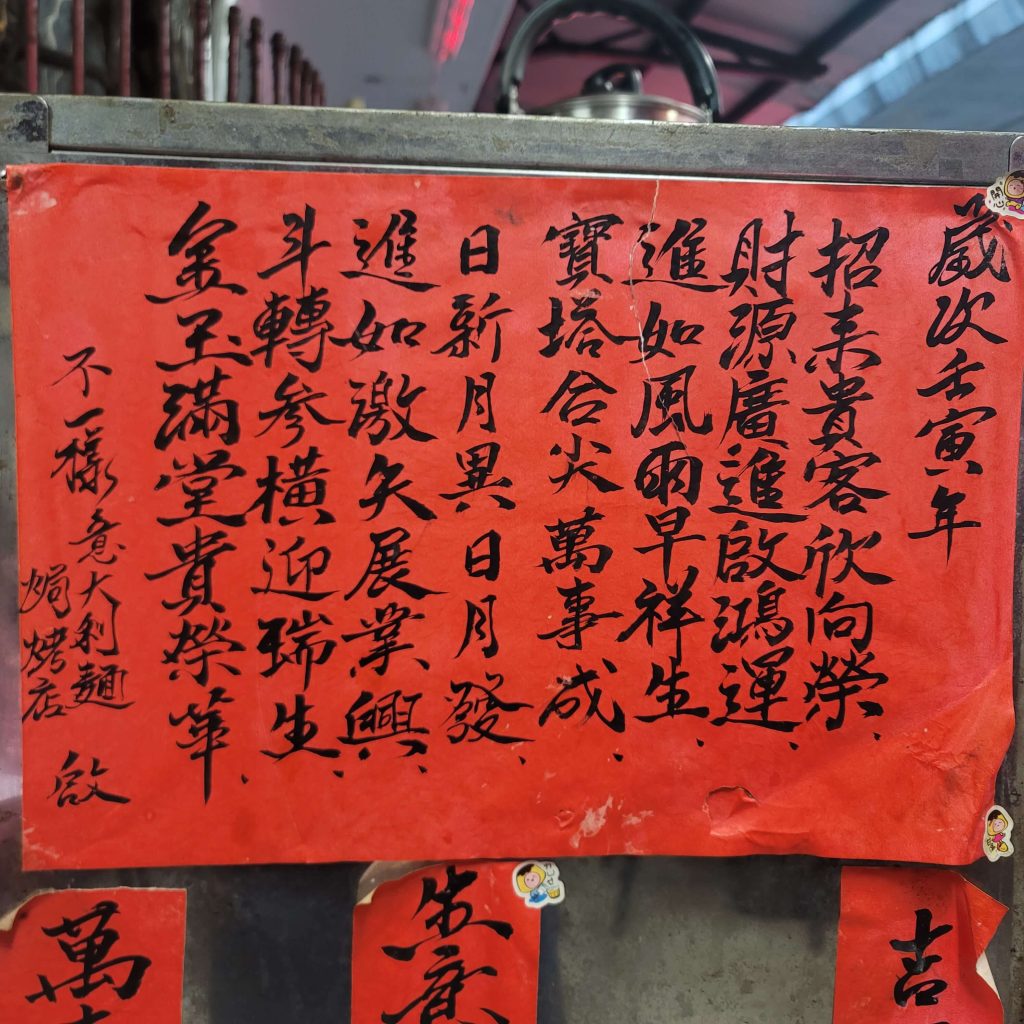 歲次壬寅年
招来貴客欣向榮、
財源廣進啟鴻運、
進如風雨早祥生、
寶塔合尖萬事成、
日新月異日月發
進如激矢展業興、
斗轉參橫迎瑞生、
金玉滿堂貴榮華、
不一樣意大利麵
焗烤店 啟
吉
生意
萬